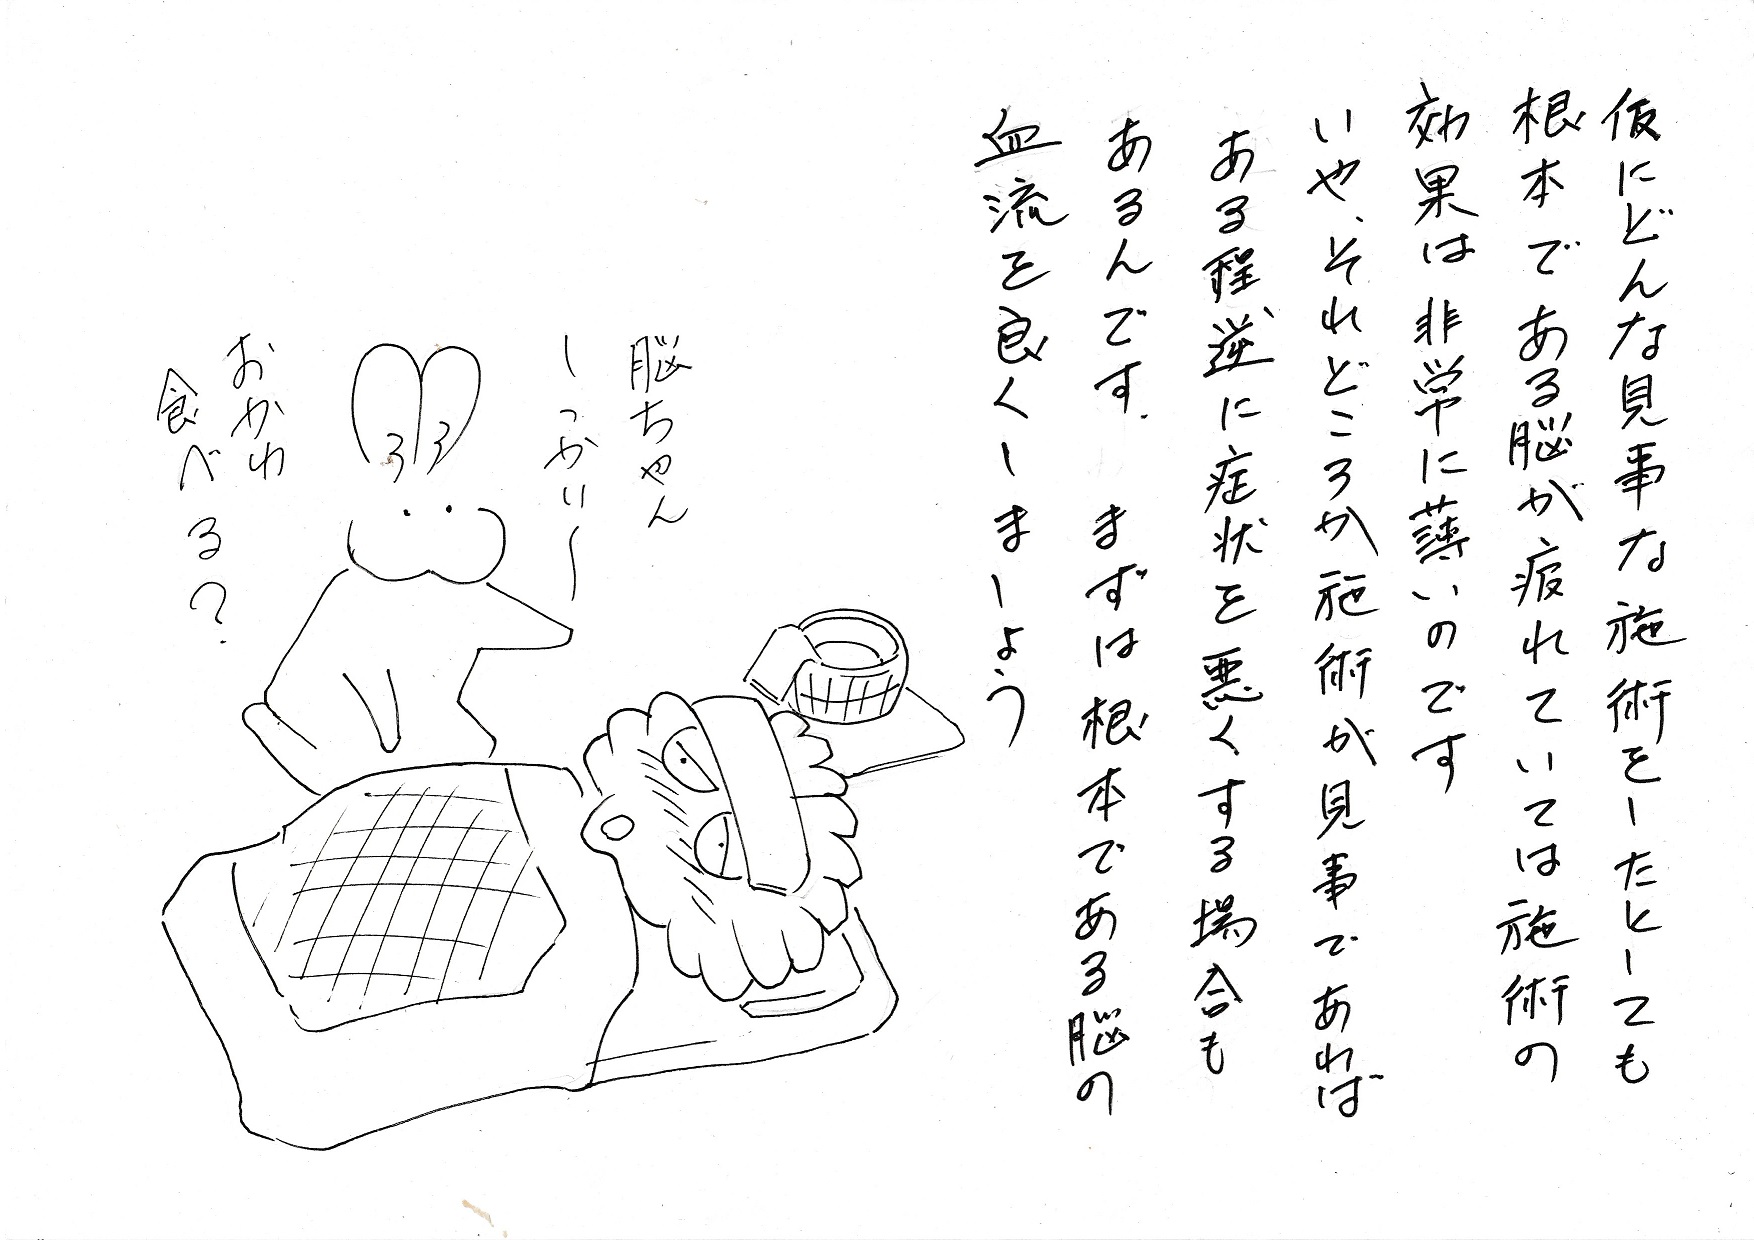 仮にどんな見事な施術をしたとしても
根本である脳が疲れていては施術の
効果は非常に薄いのです
いや、それどころか施術が見事であれば
ある程逆に症状を悪くする場合も
あるんです。まずは根本である脳の
血流を良くしましょう
脳ちゃん
しっかい〜
おかわ
食べる?